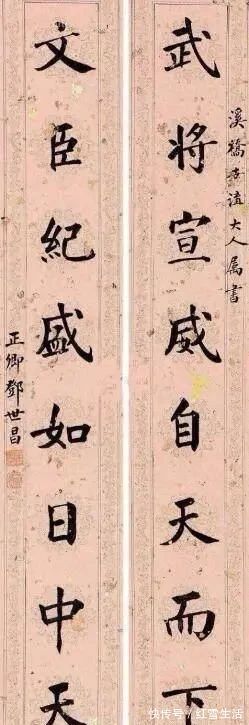 溪橋大人属書
武将宣威自天而下
文臣紀盛如日中天
正卿鄧世昌
快传号/红雪生活